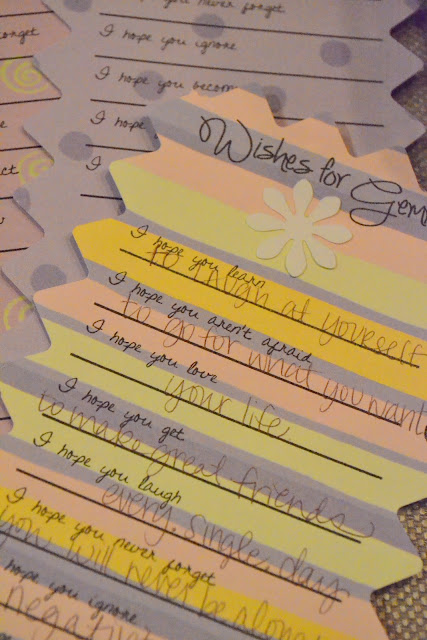 forget
I hope you never forget
I hope you ignore
I hope you becom
I hope
I
Wishes for Gem
I hope you learn
to laugh at yourself
I hope you aren't afraid
to go for what you want
I hope you love
your life
I hope you get
to make great friends
I hope you laugh
every. single. day
I hope you never forget
you will never be alone
hope you ignore
negativ